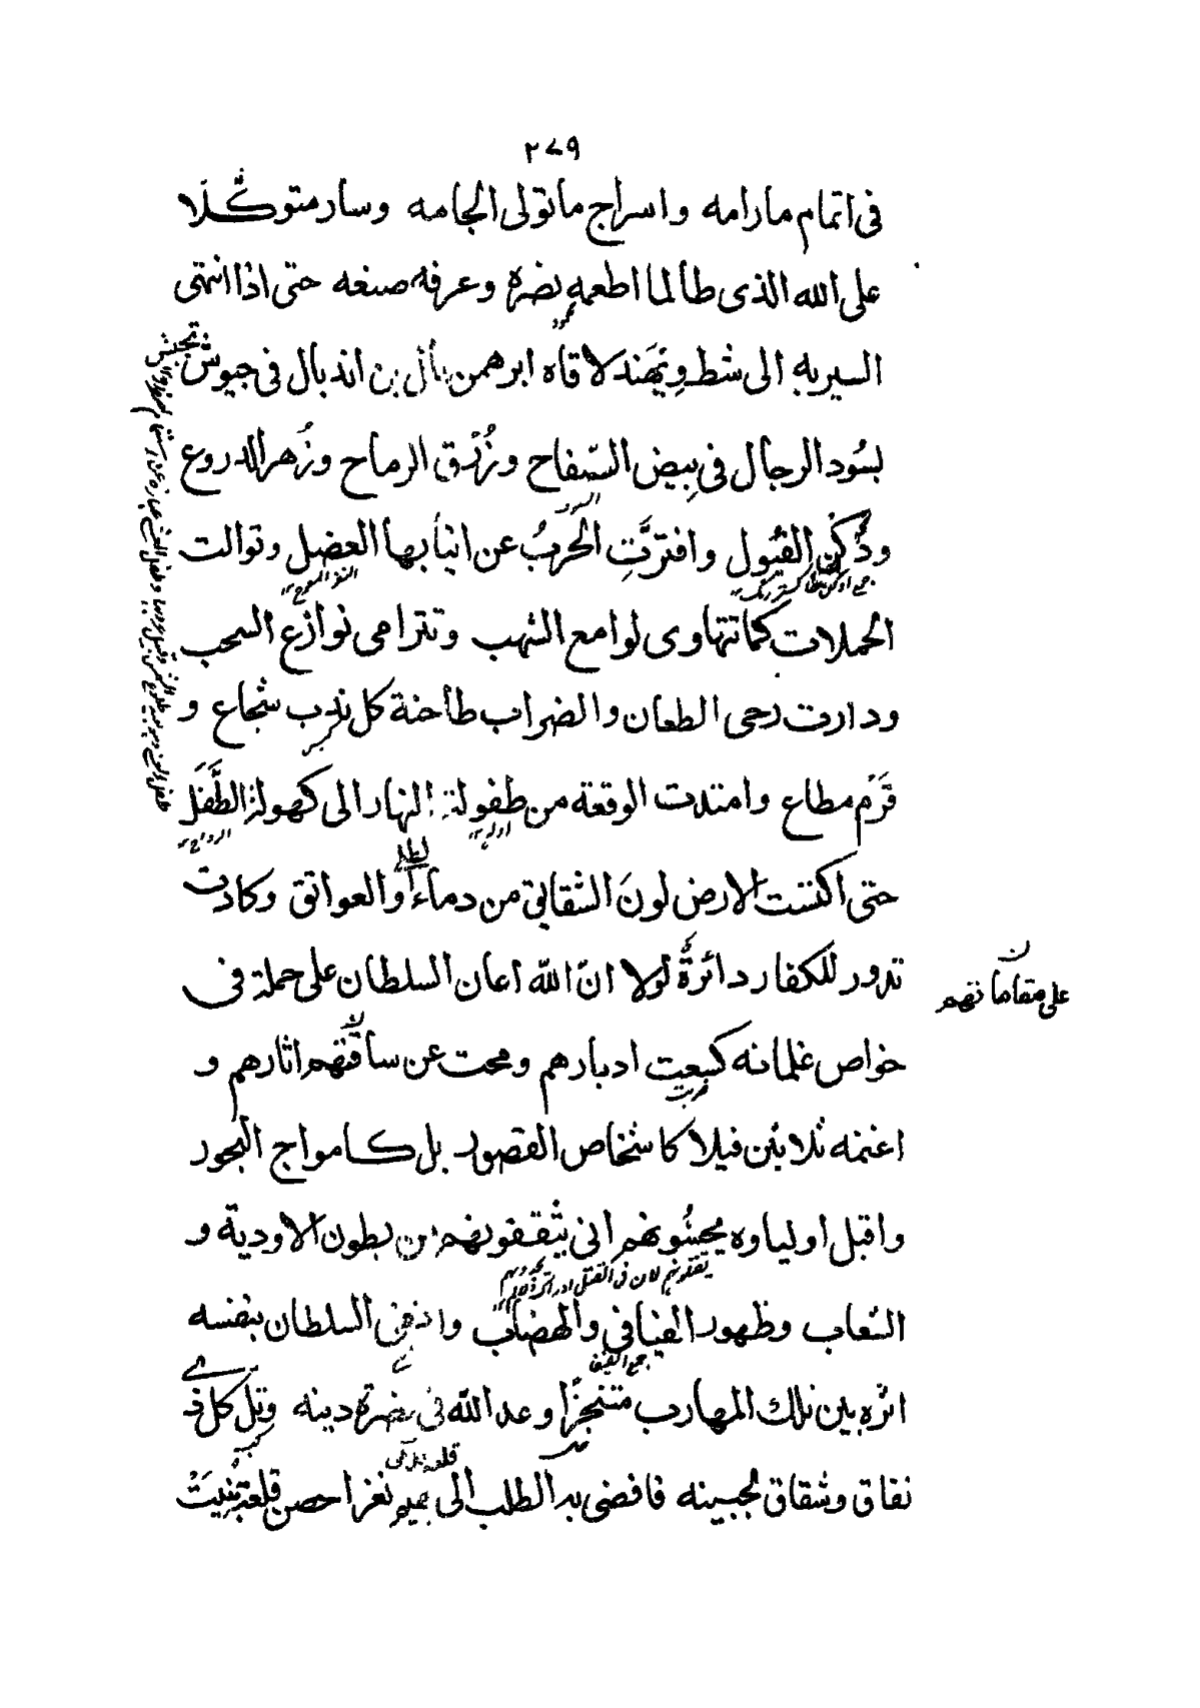 ٢٧٩
فى اتمام مارامه واسراج ماتولى الجامه وسار متوكّلا
على الله الذى طالما اطعمه نصره وعرفه صنعه حتى اذا انتهى
السير به الى شط ويهند لاقاه ابرهمن بال بن اندبال فى جيوش
بسُود الرجال فى بيض الصّفاح وزُرْق الرماح وزُهر الدروع
ودُكن الفيُول وافترَّتِ الحربُ عن انيابها العضل وتوالت
الحملات كما تتهاوى لوامع الشهب وتترامى نوازع السحب
ودارت رحى الطعان والضراب طاحنة كل ندب شجاع و
قَرْم مطاع وامتدت الوقعة من طفولة النهار الى كهولة الطَّفَل
حتى اكتست الارض لونَ الشقايق من دماء والعواتق وكادت
تدور للكفار دائرةٌ لولا انّ الله اعان السلطان على حملة فى
على مقاماتهم
خواص غلمانه كبعت ادبارهم ومحت عن ساقتهم اثارهم و
اغنمه ثلاثين فيلا كاشخاص القصور بل كامواج البحور
واقبل اولياوه يحسُّونهم انى يثقفونهم من بطون الاودية و
الشعاب وظهور الفيافى والهضاب السلطان بنفسه
جمع الفيف
اثره بين تلك المهارب متنجزًا وعد الله فى نصرة دينه وتلّ كل ذى
نفاق وشقاق لجبينه فافضى به الطلب الى بهيم نغر احصن قلعة بُنِيَتْ